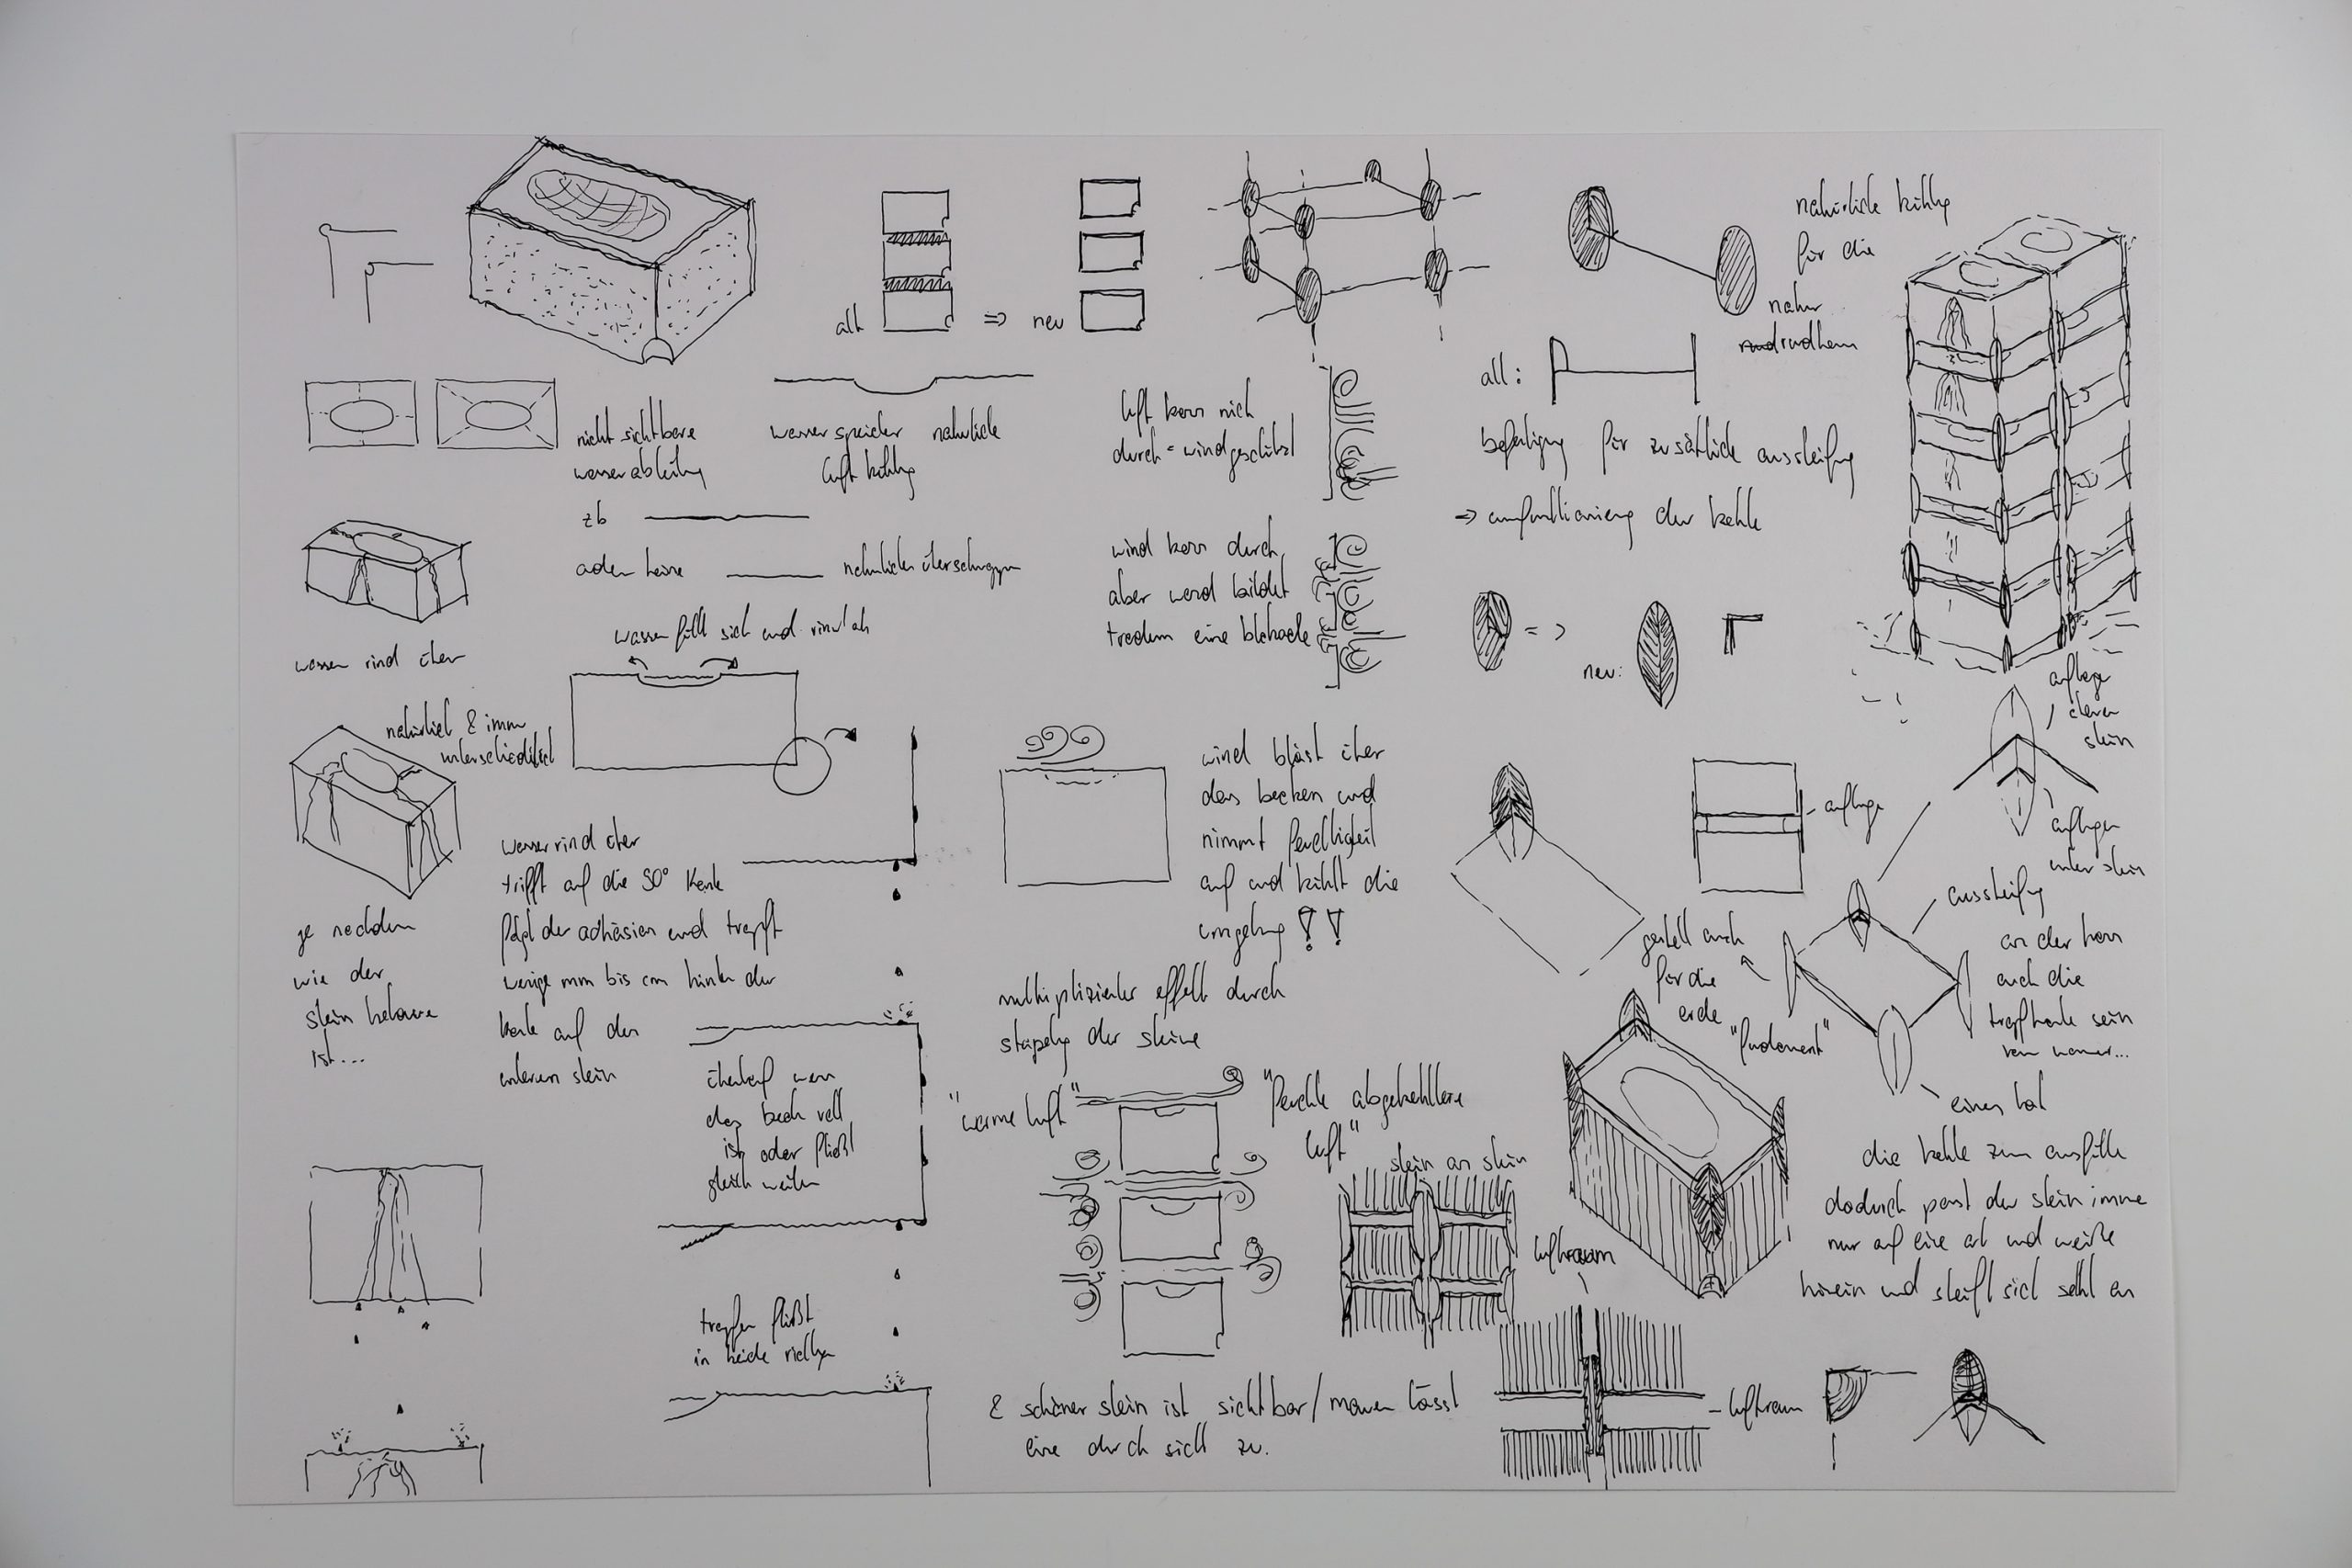 alt => neu
natürliche kühlung
für die
natur
rundherum
nicht sichtbare
wasserableitung
wasserspeicher natürliche
luftkühlung
zb
oder keine
natürliches überschwappen
luft kann nich
durch = windgeschützt
alt:
befestigung für zusätzliche aussteifung
=> umfunktionierung der kehle
wind kann durch
aber wird bildet
trotzdem eine blokade
=>
neu:
wasser rind über
wasser füllt sich und rinnt ab
natürlich & imm
unterschiedlich
je nachdem
wie der
stein behauen
ist...
wasser rind über
trifft auf die 90° kante
folgt der adhäsion und tropft
wenige mm bis cm hinter der
kante auf den
unteren stein
überlauf wenn
das beck voll
ist oder fließt
gleich weiter
tropfen fließt
in beide richtungen
wind bläst über
das becken und
nimmt feuchtigkeit
auf und kühlt die
umgebung !!
multiplizierter effekt durch
stapelung der steine
"warme luft"
"feuchte abgekühltere
luft"
stein an stein
luftraum
luftraum
& schöner stein ist sichtbar / mauer lässt
eine durchsicht zu.
auflage
auflage
oberer
stein
auflager
unter stein
aussteifung
gestell auch
für die
erde
"fundament"
an der kann
auch die
tropfkante sein
vom wasser...
einer hat
die kehle zum ausfüllen
dadurch passt der stein immer
nur auf eine art und weiße
hinein und steift sich selbst an